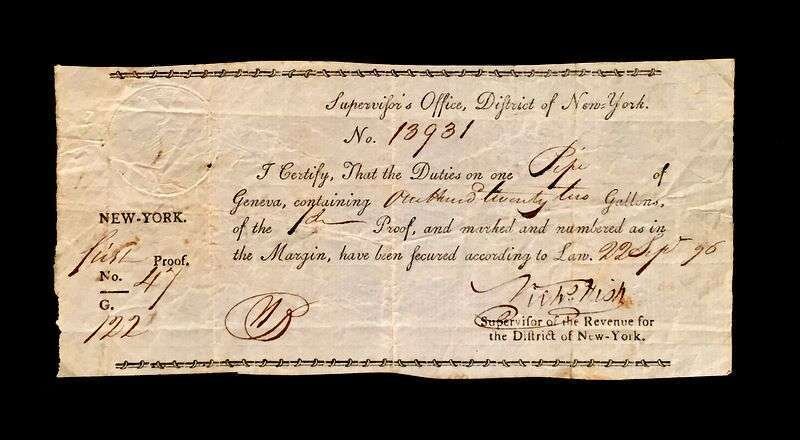 Supervisor's Office, District of New-York.
No. 13931
I Certify, That the Duties on one Pipe of
Geneva, containing one hund twenty two Gallons,
of the 1st Proof, and marked and numbered as in
the Margin, have been secured according to Law. 22 Sept 96
Nichs Fish
Supervisor of the Revenue for
the District of New-York.
NEW-YORK.
first Proof.
No. 47
G.
122